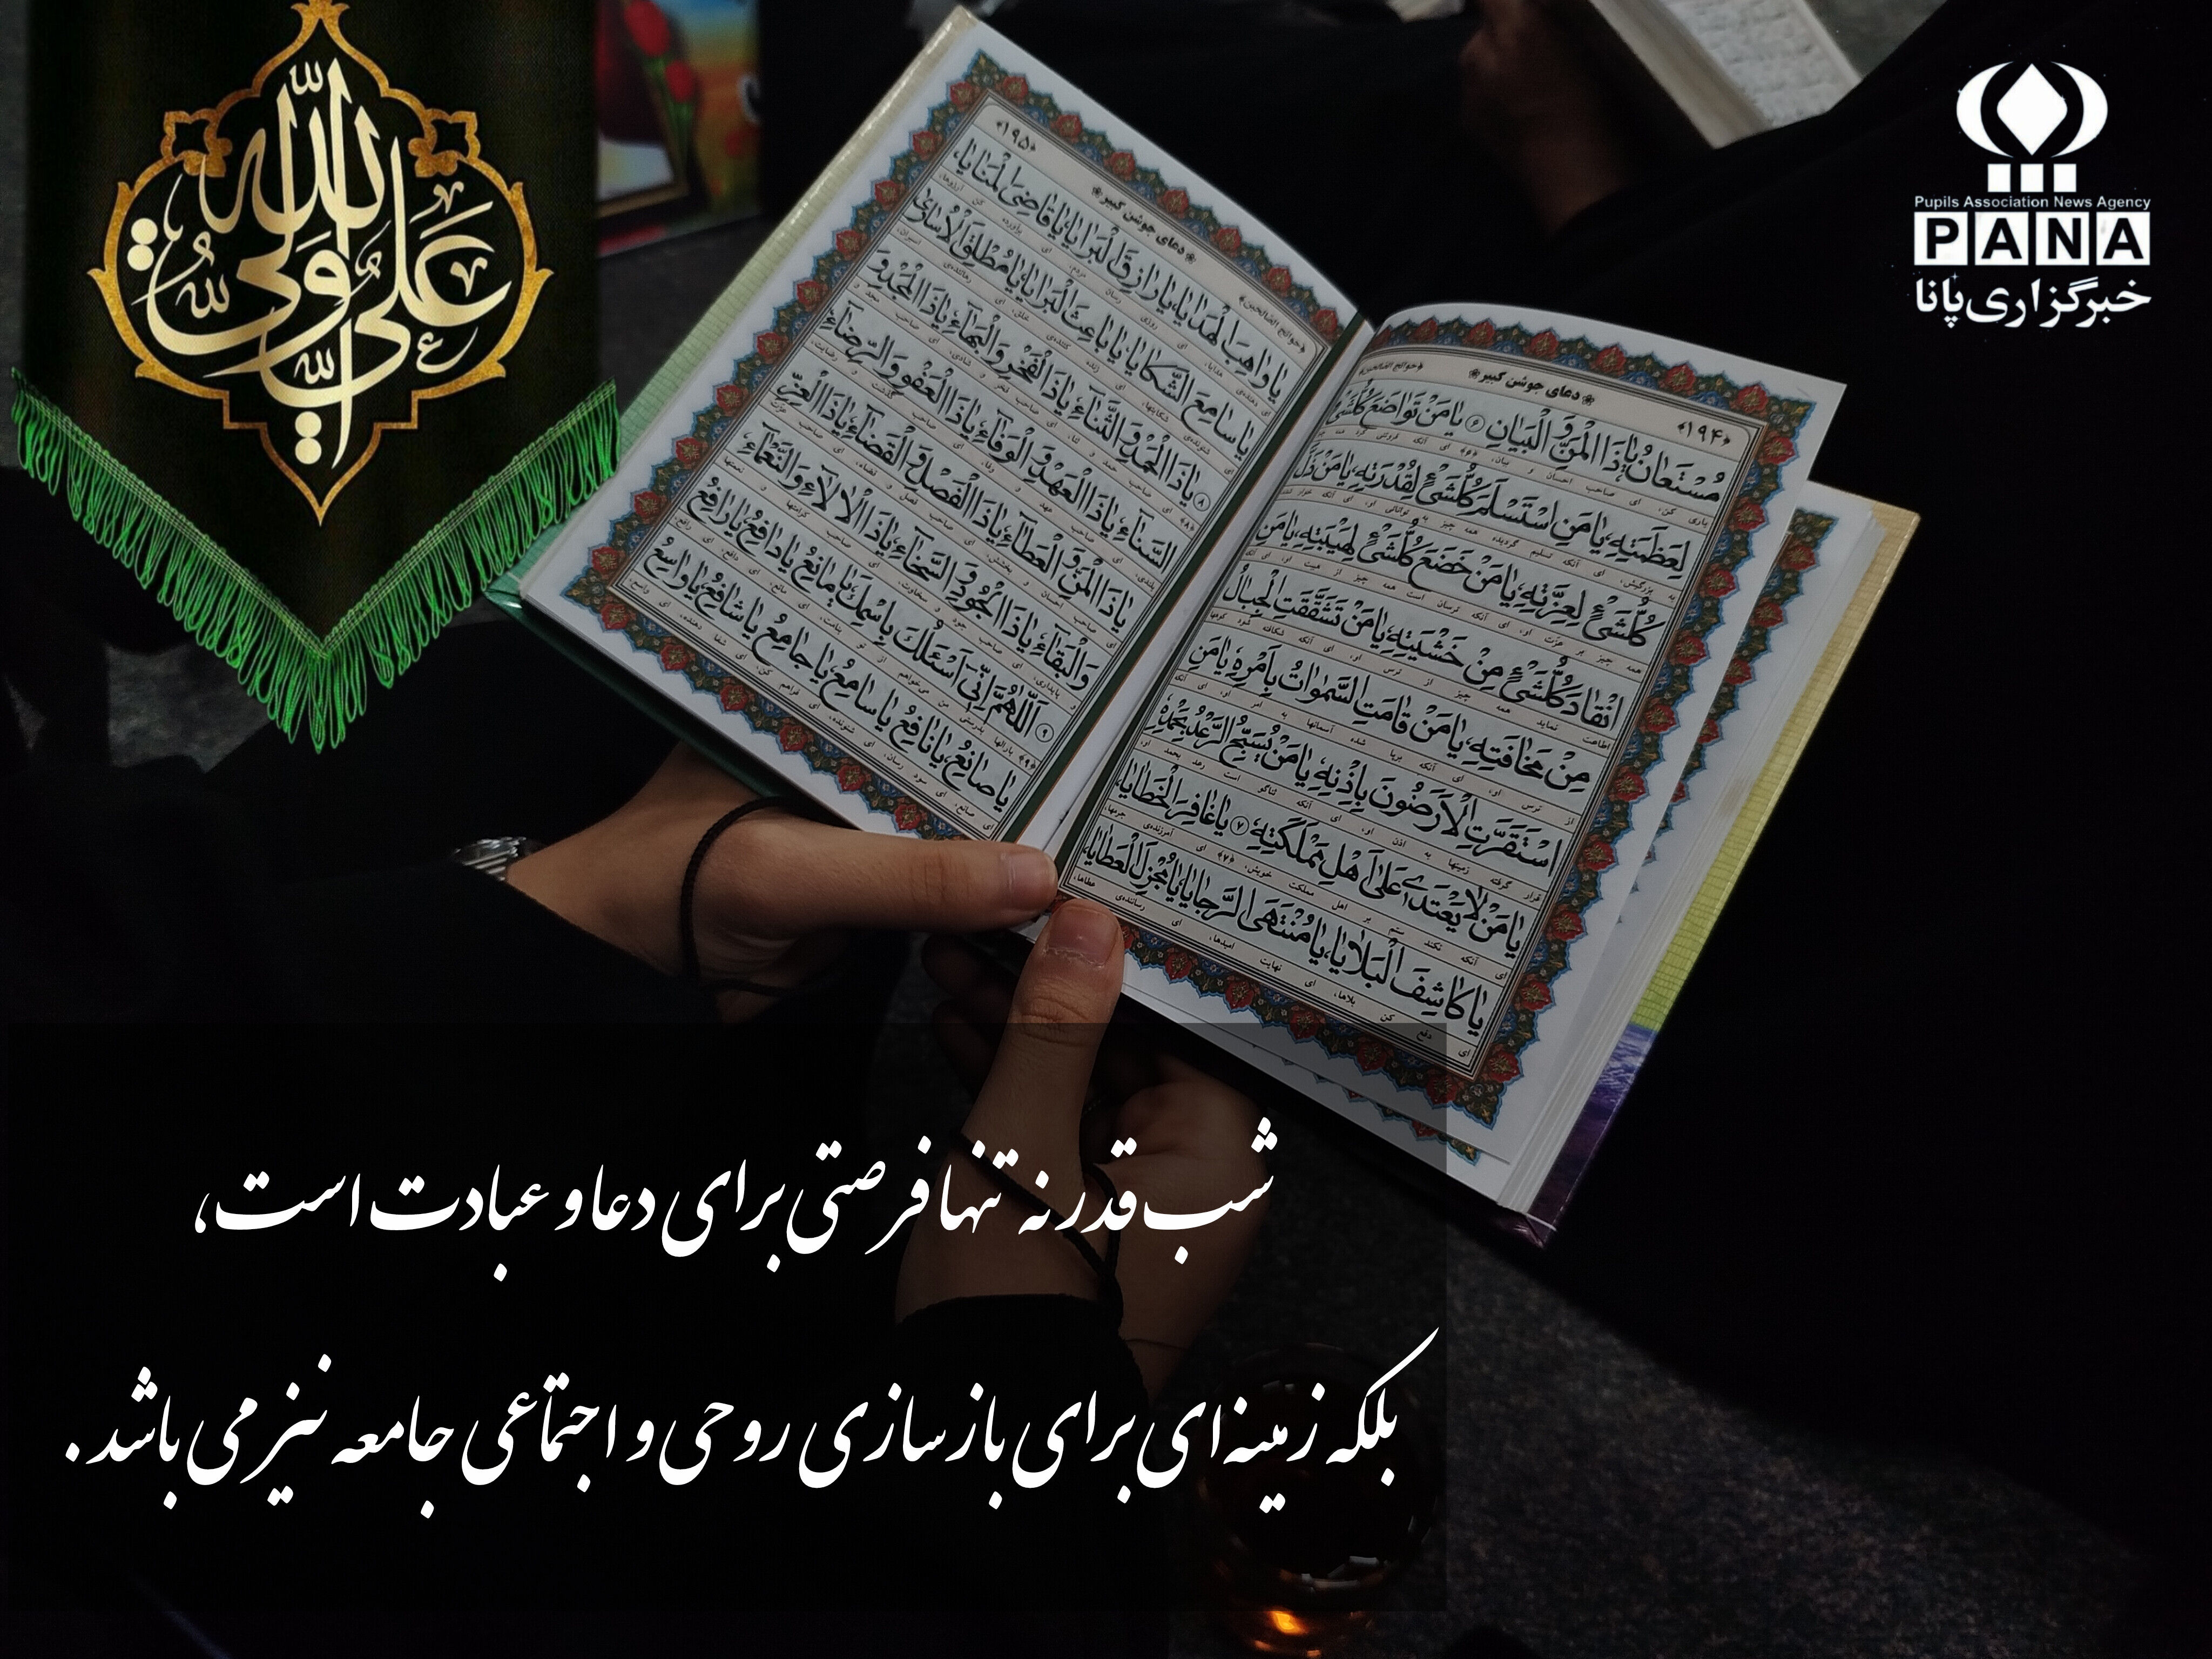 علی ولی الله
Pupils Association News Agency
PANA
خبرگزاری پانا
﴿۱۹۴﴾
دعای جوشن کبیر
﴿حوائج الصالحین﴾
مُسْتَعانُ يا ذَا الْمَنِّ وَ الْبَيانِ ۶ يا مَنْ تَواضَعَ كُلُّشَىْءٍ
لِعَظَمَتِهِ، يا مَنِ اسْتَسْلَمَ كُلُّشَىْءٍ لِقُدْرَتِهِ، يا مَنْ ذَلَّ
كُلُّشَىْءٍ لِعِزَّتِهِ، يا مَنْ خَضَعَ كُلُّشَىْءٍ لِهَيْبَتِهِ، يا مَنِ
انْقادَ كُلُّشَىْءٍ مِنْ خَشْيَتِهِ، يا مَنْ تَشَقَّقَتِ الْجِبالُ
مِنْ مَخافَتِهِ، يا مَنْ قامَتِ السَّمواتُ بِاَمْرِهِ، يا مَنِ
اسْتَقَرَّتِ الْاَرَضُونَ بِاِذْنِهِ، يا مَنْ يُسَبِّحُ الرَّعْدُ بِحَمْدِهِ
يا مَنْ لا يَعْتَدى عَلى اَهْلِ مَمْلَكَتِهِ، ۷ يا غافِرَ الْخَطايا،
يا كاشِفَ الْبَلايا، يا مُنْتَهَى الرَّجايا، يا مُجْزِلَ الْعَطايا،
﴿۱۹۵﴾
دعای جوشن کبیر
﴿حوائج الصالحین﴾
يا واهِبَ الْهَدايا، يا رازِقَ الْبَرايا، يا قاضِىَ الْمَنايا،
يا سامِعَ الشَّكايا، يا باعِثَ الْبَرايا، يا مُطْلِقَ الْاُسارى
۸ يا ذَا الْحَمْدِ وَ الثَّناءِ، يا ذَا الْفَخْرِ وَ الْبَهاءِ، يا ذَا الْمَجْدِ وَ
السَّناءِ، يا ذَا الْعَهْدِ وَ الْوَفاءِ، يا ذَا الْعَفْوِ وَ الرِّضاءِ،
يا ذَا الْمَنِّ وَ الْعَطاءِ، يا ذَا الْفَصْلِ وَ الْقَضاءِ، يا ذَا الْعِزِّ
وَ الْبَقاءِ، يا ذَا الْجُودِ وَ السَّخاءِ، يا ذَا الْالاءِ وَ النَّعْماءِ
۹ اَللّهُمَّ اِنّى اَسْئَلُكَ بِاسْمِكَ، يا مانِعُ يا دافِعُ يا رافِعُ
يا صانِعُ، يا نافِعُ يا سامِعُ، يا جامِعُ يا شافِعُ، يا واسِعُ
شب قدر نه تنها فرصتی برای دعا و عبادت است،
بلکه زمینه‌ای برای بازسازی روحی و اجتماعی جامعه نیز می باشد.